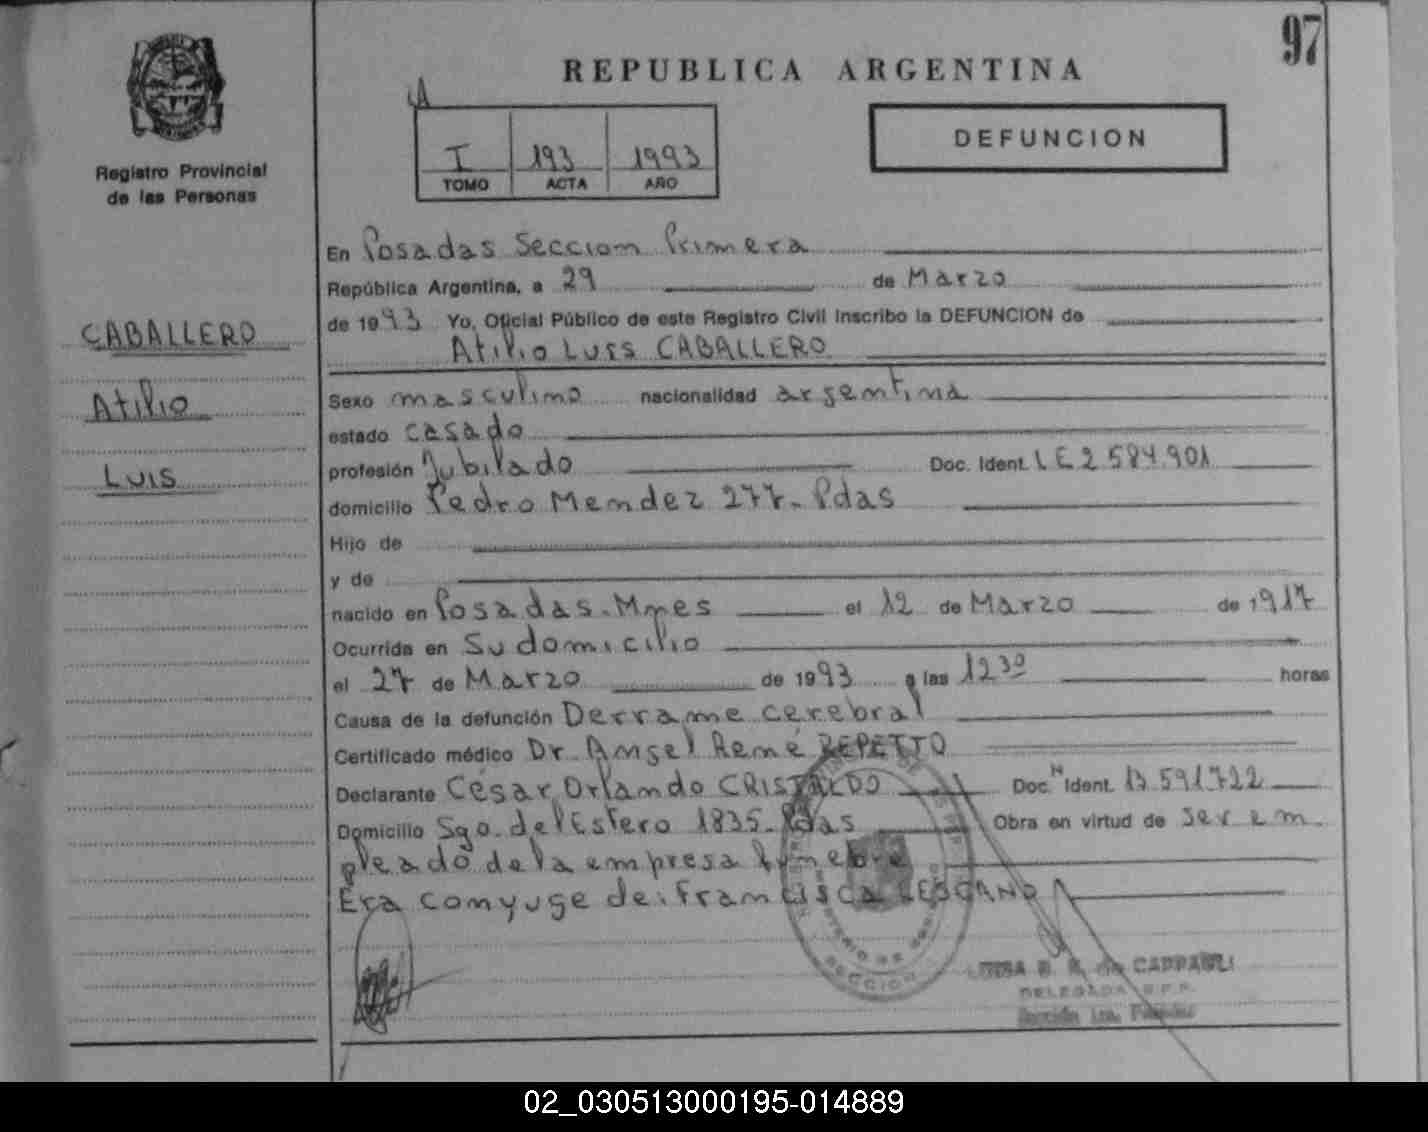 97
REPUBLICA ARGENTINA
Registro Provincial
de las Personas
I 193 1993
TOMO ACTA AÑO
DEFUNCION
CABALLERO
Atilio
LUIS
En Posadas Seccion Primera
República Argentina, a 29 de Marzo
de 1993 Yo, Oficial Público de este Registro Civil inscribo la DEFUNCION de
Atilio LUIS CABALLERO
Sexo masculino nacionalidad argentina
estado casado
profesión Jubilado Doc. Ident. LE 2 584.901
domicilio Pedro Mendez 277. Pdas
Hijo de
y de
nacido en Posadas. Mnes el 12 de Marzo de 1917
Ocurrida en Su domicilio
el 27 de Marzo de 1993 a las 12 30 horas
Causa de la defunción Derrame cerebral
Certificado médico Dr. Angel René REPETTO
Declarante César Orlando CRISTALDO Doc. N Ident. 13 591.722
Domicilio Sgo. del Estero 1835. Pdas Obra en virtud de ser em.
pleado de la empresa funebre
Era conyuge de: Francisca LESCANO
SECCION
DELEGADA R.P.P.
Sección 1ra. Posadas
02_030513000195-014889